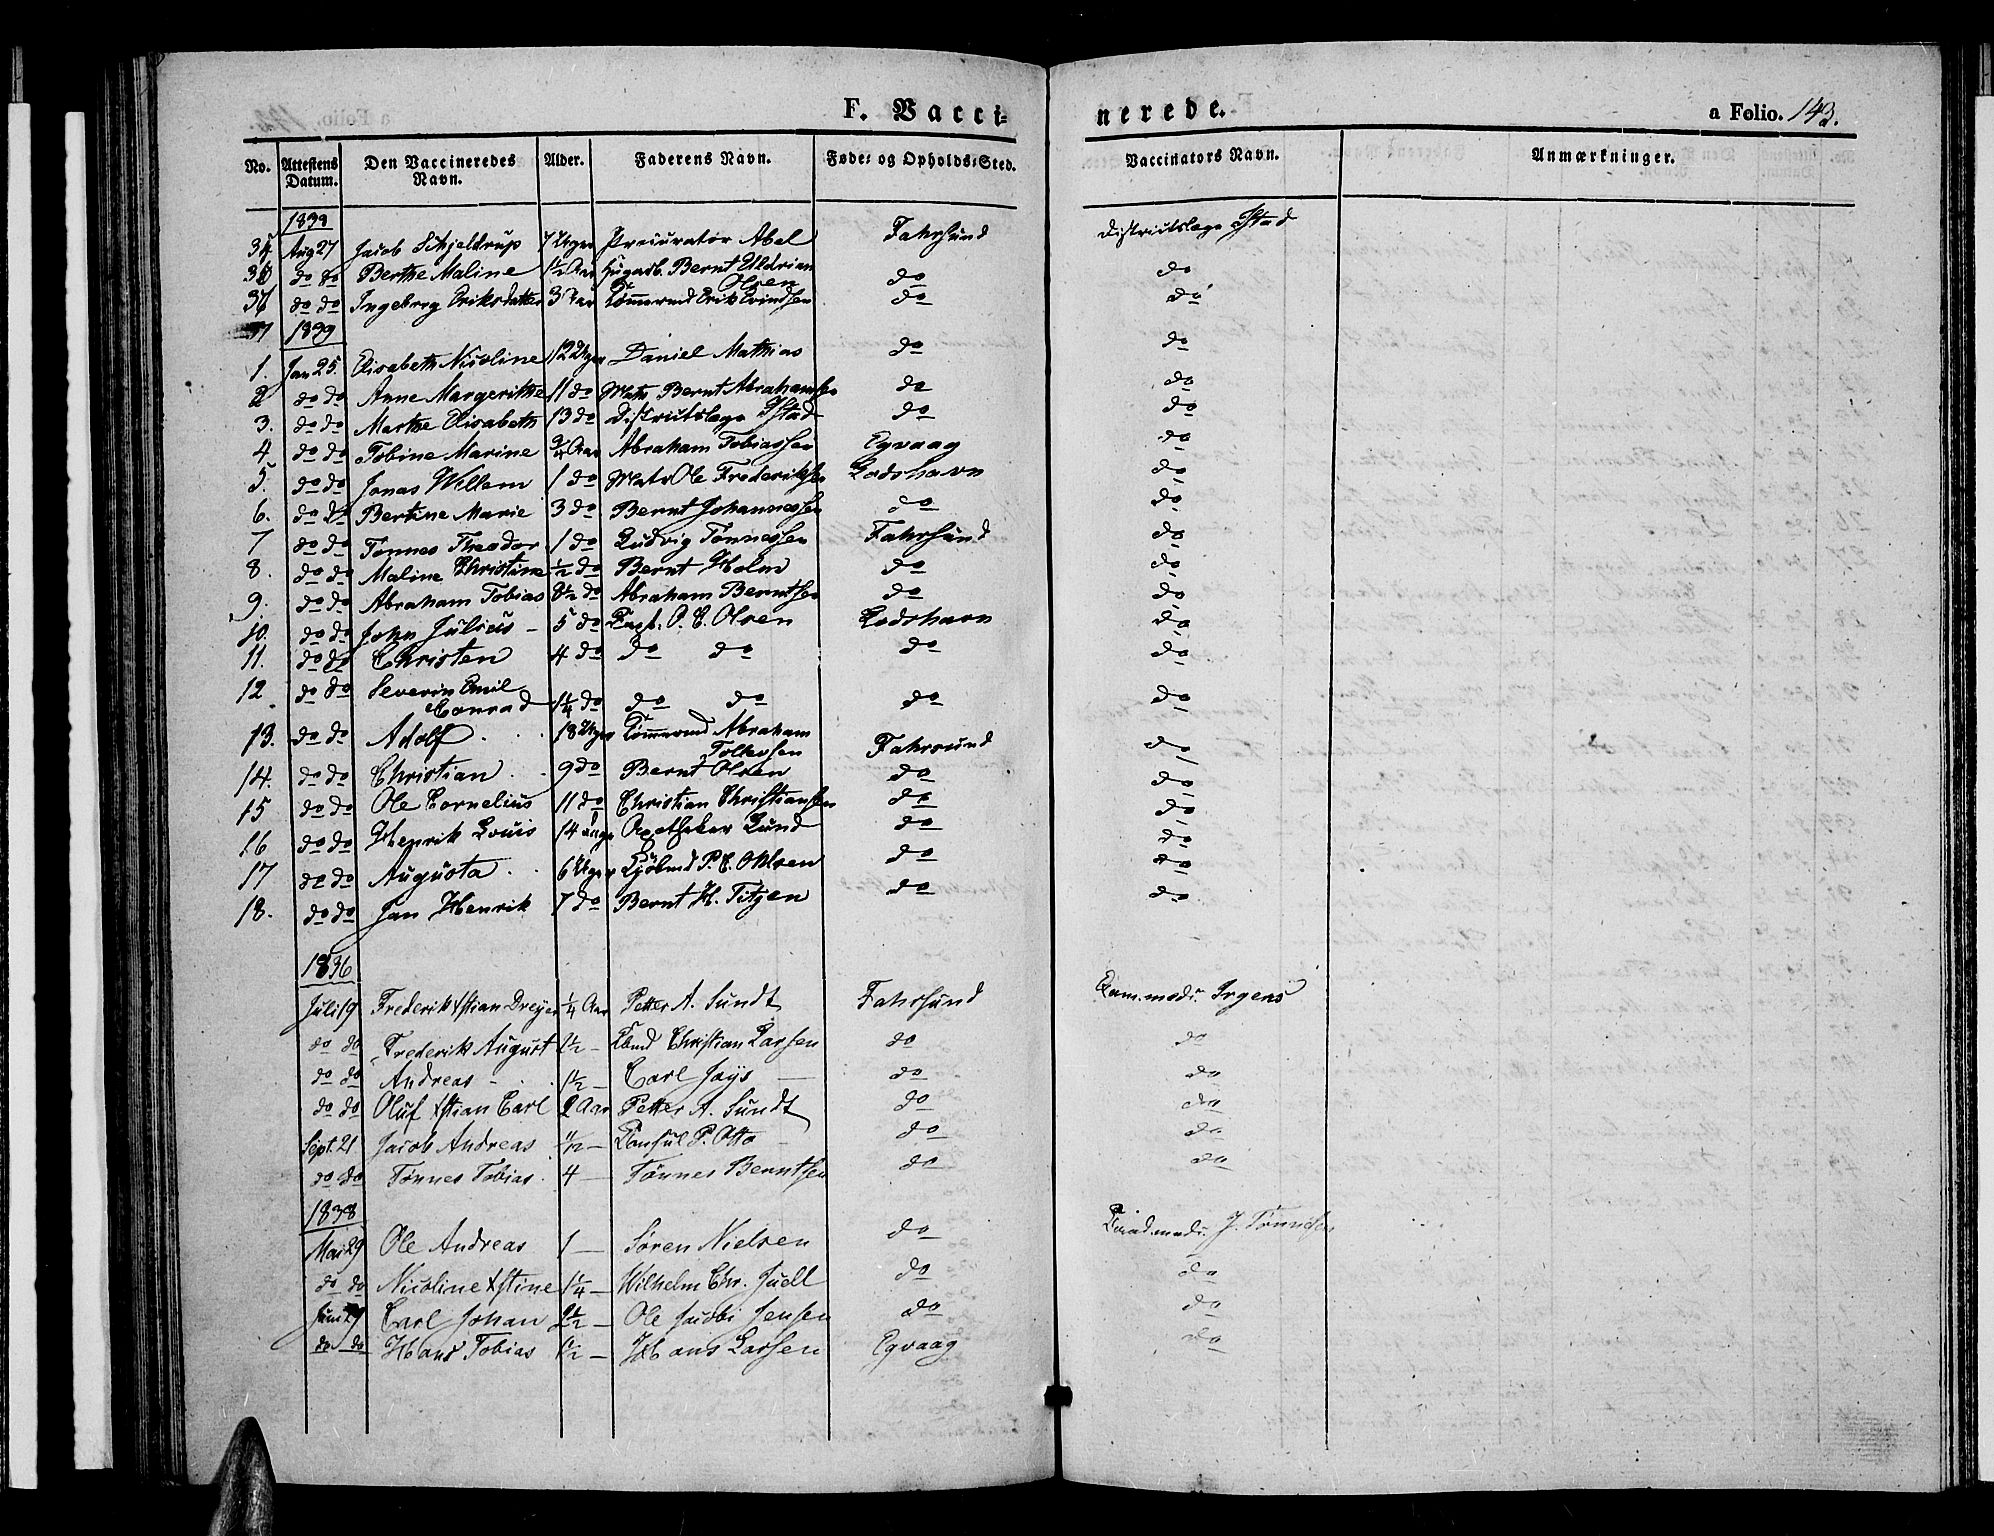 F. Vacci=
nerede.
a Folio. 143.
No. Attestens Datum. Den Vaccineredes Navn. Alder. Faderens Navn. Føde- og Opholds-Sted. Vaccinators Navn. Anmærkninger.
1838
Aug 27 Jacob Schjeldrup 7 Uger Procurator Abel Fahrsund Districtslæge Ystad
do do Berthe Maline 1½ Aar Bernt Uldrian Olsen do do
do do Ingeborg Eriksdatter 3 Aar Tømmermd Erik Evindsen do do
1839
1. Jan 25. Elisabeth Nicoline 12 Uger Daniel Mathias do do
2 do do Anne Margerithe 11 do Mats Bernt Abrahamsen do do
3. do do Marthe Elisabeth 13 do Districtslæge Ystad do do
4 do do Tobine Marine ¾ Aar Abraham Tobiassen Egvaag do
5. do do Jonas Willem 1 do Mats Ole Frederiksen Lodshavn do
6. do do Bertine Marie 3 do Bernt Johannessen do do
7 do do Tønnes Theodor 1 do Ludvig Tønnessen Fahrsund do
8. do do Maline Christine ½ do Bernt Holm do do
9. do do Abraham Tobias 8½ do Abraham Berntsen do do
10. do do John Julius - 5 do Capt. O. C. Olsen Lodshavn do
11. do do Christen 4 do do do do do
12 do do Severin Emil Conrad 1¼ do do do do do
13. do do Adolf 18 Uger Tømmermd Abraham Tollevsen Fahrsund do
14. do do Christian 9 do Bernt Olsen do do
15 do do Ole Cornelius 11 do Christian Christiansen do do
16 do do Henrik Louis 14 Uger Apotheker Lund do do
17 do do Augusta 6 Uger Kjøbmd P. C. Ohlsen do do
18. do do Jan Henrik 7 do Bernt H. Titjen do do
1836
Juli 19 Frederik Xstian Dreyer ¼ Aar Petter A. Sundt Fahrsund Exam. med: Irgens
do do Frederik August 1½ - Christian Larsen do do
do do Andreas - 1½ - Carl Jays do do
do do Oluf Xstian Carl 2 Aar Petter A. Sundt do do
Sept. 21 Jacob Andreas 1½ - Consul P. Otto do do
do do Tønnes Tobias 4 - Tønnes Berntsen do do
1838
Mai 29 Ole Andreas 1 - Søren Nielsen do Cand. med: J. Tønnesen
do do Nicoline Xstine 1¼ - Wilhelm Chr. Juell do do
Juni 29 Carl Johan 2½ - Ole Jacobi Jensen do do
do do Hans Tobias 1½ - Hans Larsen Egvaag do